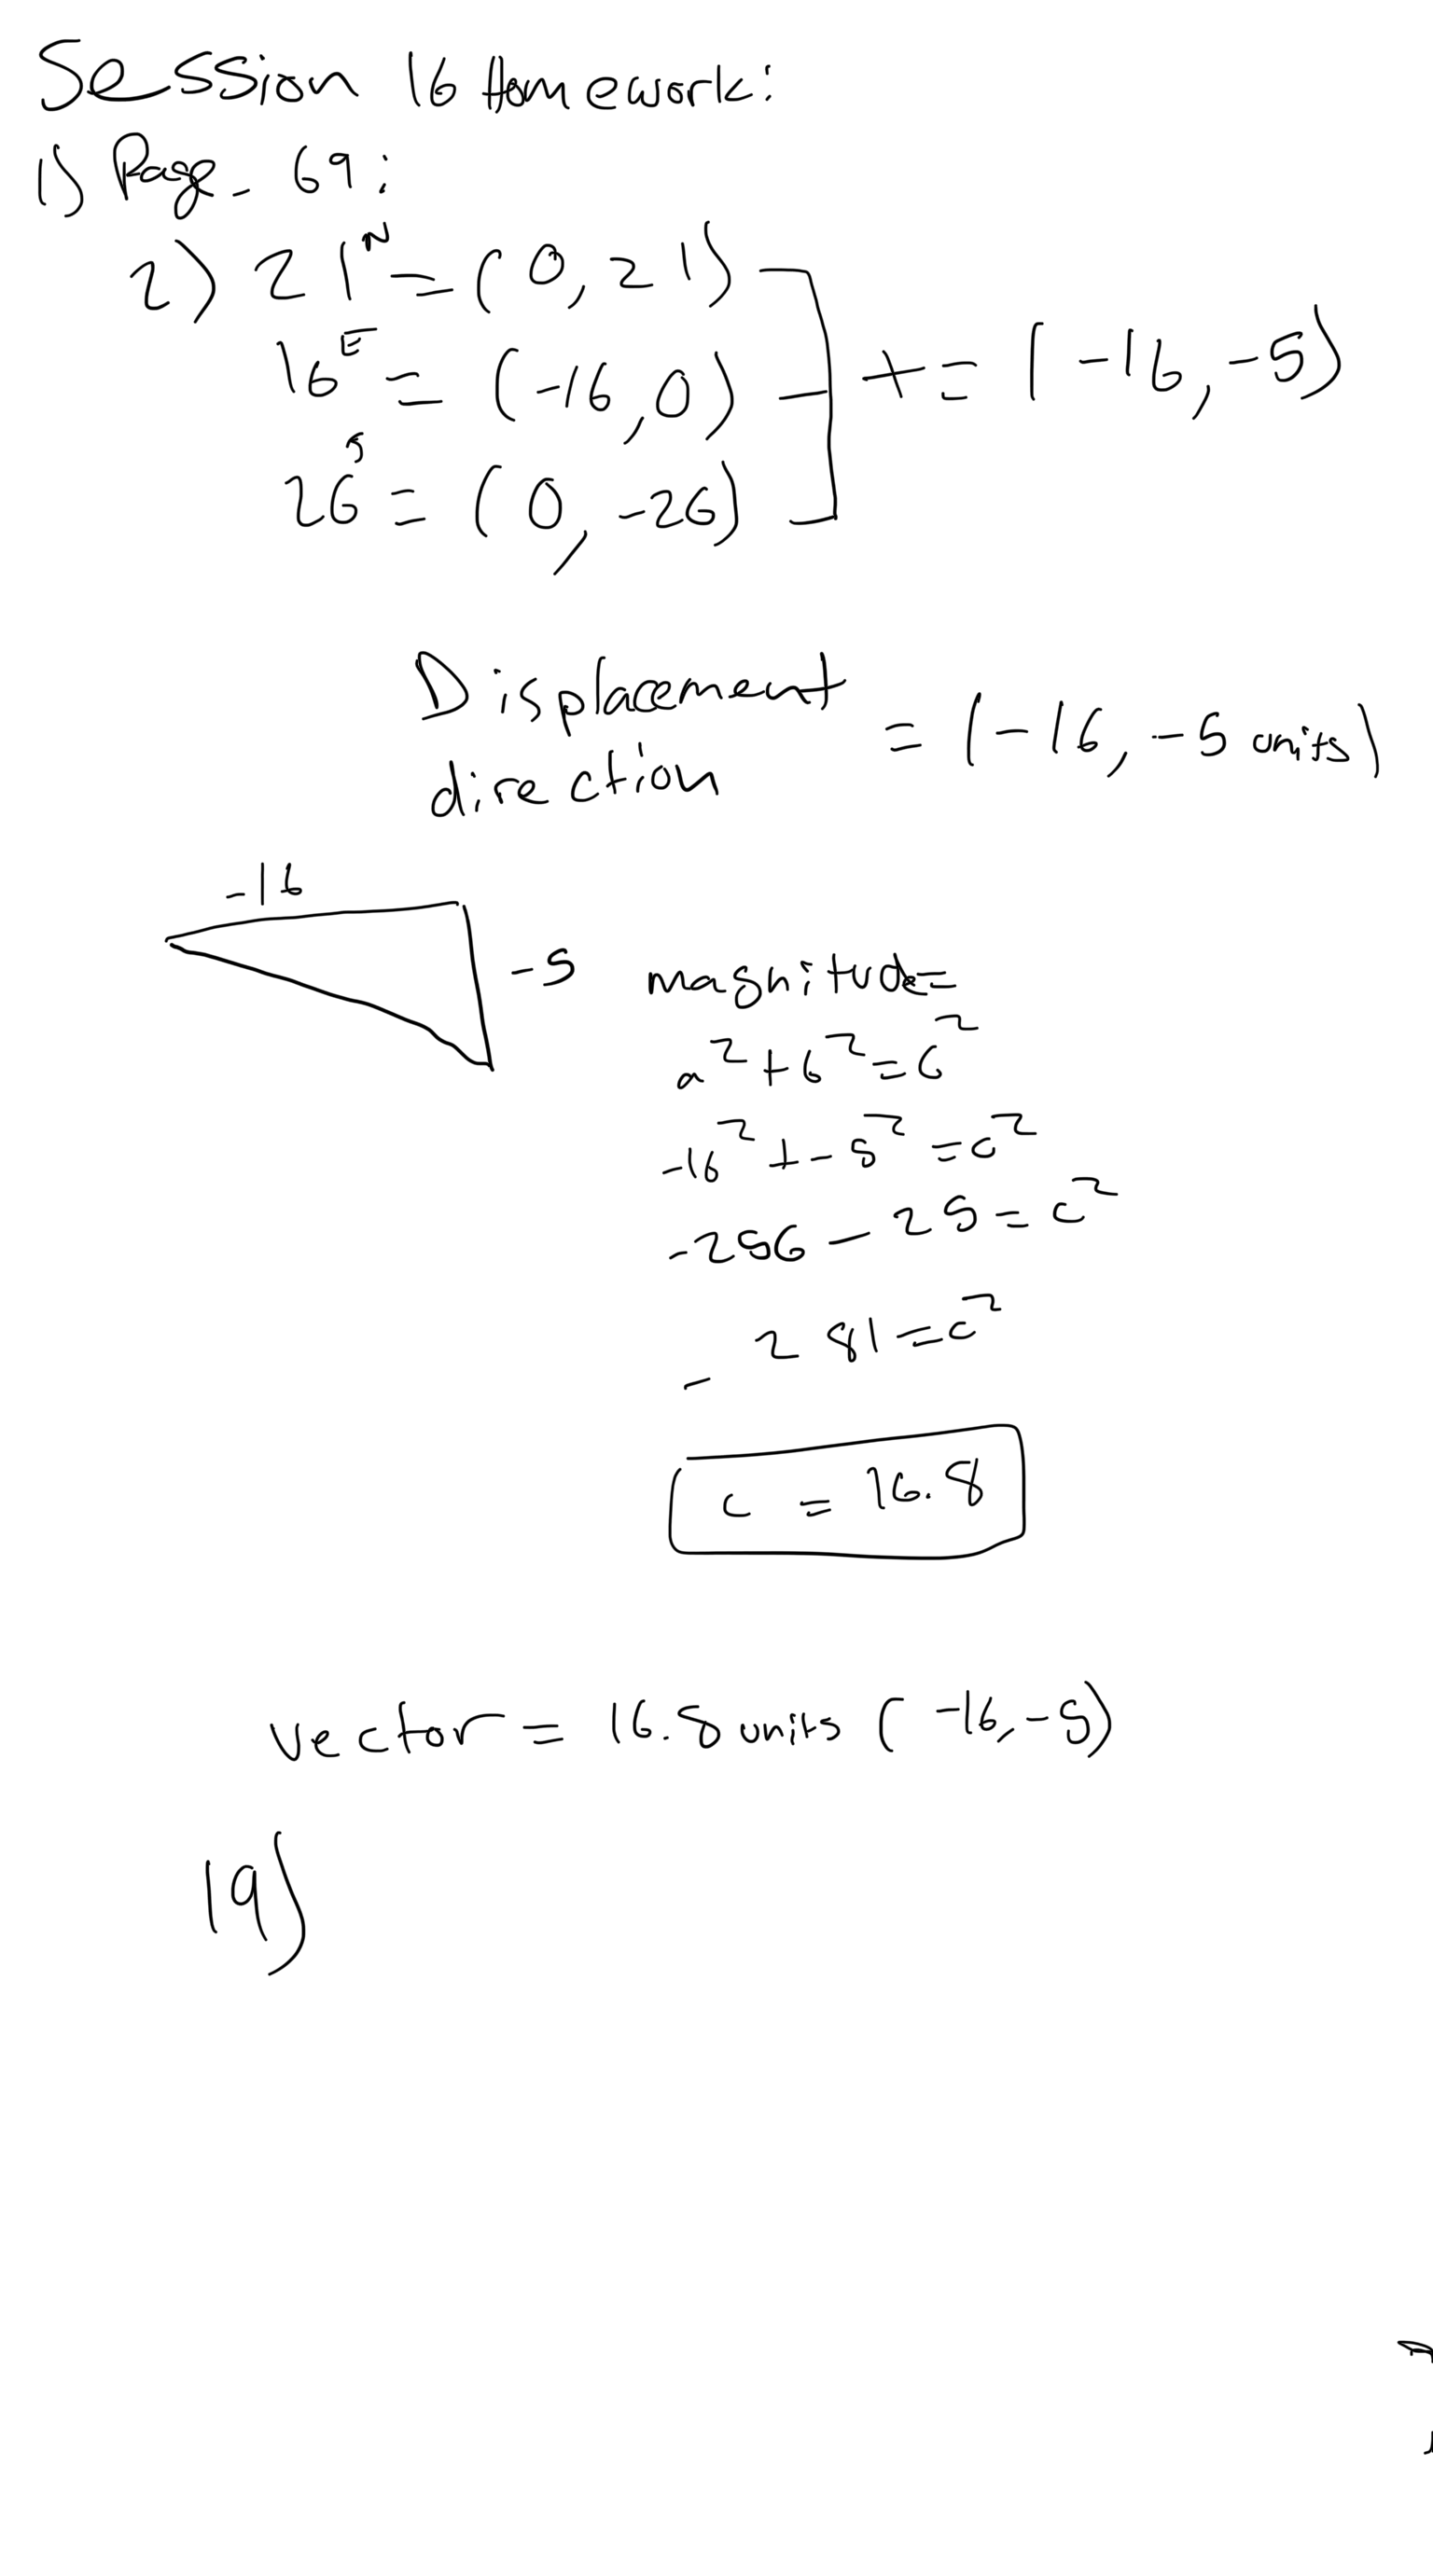 Session 16 Homework:
1) Page. 69:
2) 21ᴺ = (0, 21)
16ᴱ = (-16, 0)
26ˢ = (0, -26)
+ = (-16, -5)
Displacement
direction
= (-16, -5 units)
-16
-5
magnitude=
a² + b² = c²
-16² + -5² = c²
-256 - 25 = c²
- 281 = c²
c = 16.8
vector = 16.8 units (-16, -5)
19)